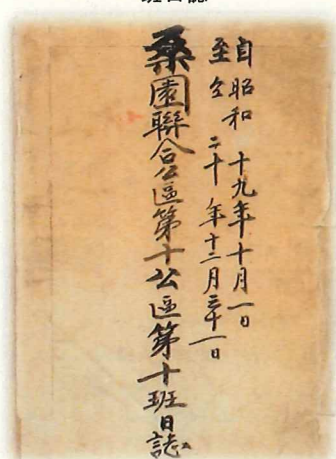 班日誌
自昭和十九年十月一日
至仝二十年十二月三十一日
桑園聯合公區第十公區第十班日誌